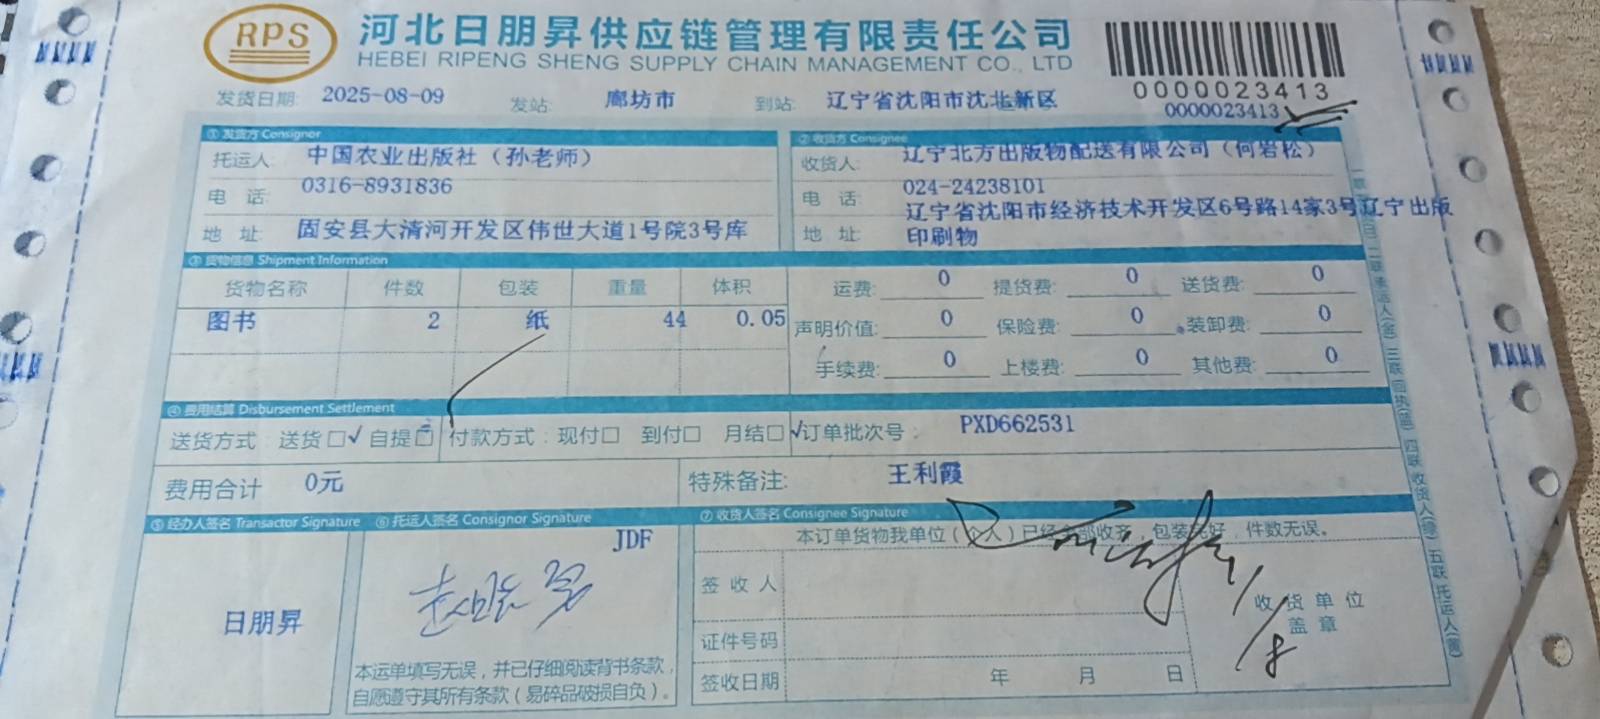 RPS
河北日朋昇供应链管理有限责任公司
HEBEI RIPENG SHENG SUPPLY CHAIN MANAGEMENT CO., LTD
0000023413
0000023413
发货日期: 2025-08-09 发站: 廊坊市 到站: 辽宁省沈阳市沈北新区
① 发货方 Consignor
托运人 中国农业出版社（孙老师）
电 话: 0316-8931836
地 址: 固安县大清河开发区伟世大道1号院3号库
② 收货方 Consignee
收货人: 辽宁北方出版物配送有限公司（何岩松）
电 话: 024-24238101
地 址: 辽宁省沈阳市经济技术开发区6号路14家3号辽宁出版
印刷物
③ 货物信息 Shipment Information
货物名称 件数 包装 重量 体积
图书 2 纸 44 0.05
运费: 0 提货费: 0 送货费: 0
声明价值: 0 保险费: 0 装卸费: 0
手续费: 0 上楼费: 0 其他费: 0
④ 费用结算 Disbursement Settlement
送货方式: 送货□√ 自提□ 付款方式: 现付□ 到付□ 月结□√ 订单批次号: PXD662531
费用合计 0元 特殊备注: 王利霞
⑤ 经办人签名 Transactor Signature
日朋昇
⑥ 托运人签名 Consignor Signature
JDF
本运单填写无误，并已仔细阅读背书条款，
自愿遵守其所有条款（易碎品破损自负）。
⑦ 收货人签名 Consignee Signature
本订单货物我单位（个人）已经全部收齐，包装完好，件数无误。
签 收 人
证件号码
签收日期 年 月 日
收 货 单 位
盖 章